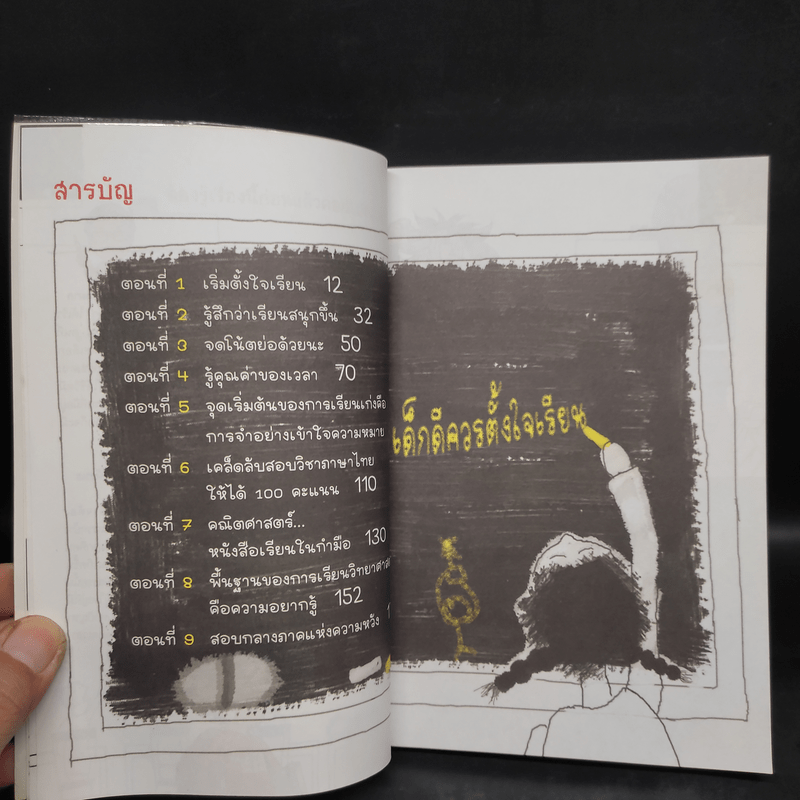 สารบัญ
ตอนที่ 1 เริ่มตั้งใจเรียน 12
ตอนที่ 2 รู้สึกว่าเรียนสนุกขึ้น 32
ตอนที่ 3 จดโน้ตย่อด้วยนะ 50
ตอนที่ 4 รู้คุณค่าของเวลา 70
ตอนที่ 5 จุดเริ่มต้นของการเรียนเก่งคือ
การจำอย่างเข้าใจความหมาย
ตอนที่ 6 เคล็ดลับสอบวิชาภาษาไทย
ให้ได้ 100 คะแนน 110
ตอนที่ 7 คณิตศาสตร์...
หนังสือเรียนในกำมือ 130
ตอนที่ 8 พื้นฐานของการเรียน
คือความอยากรู้ 152
ตอนที่ 9 สอบกลางภาคแห่งความหวัง
เด็กดีควรตั้งใจเรียน